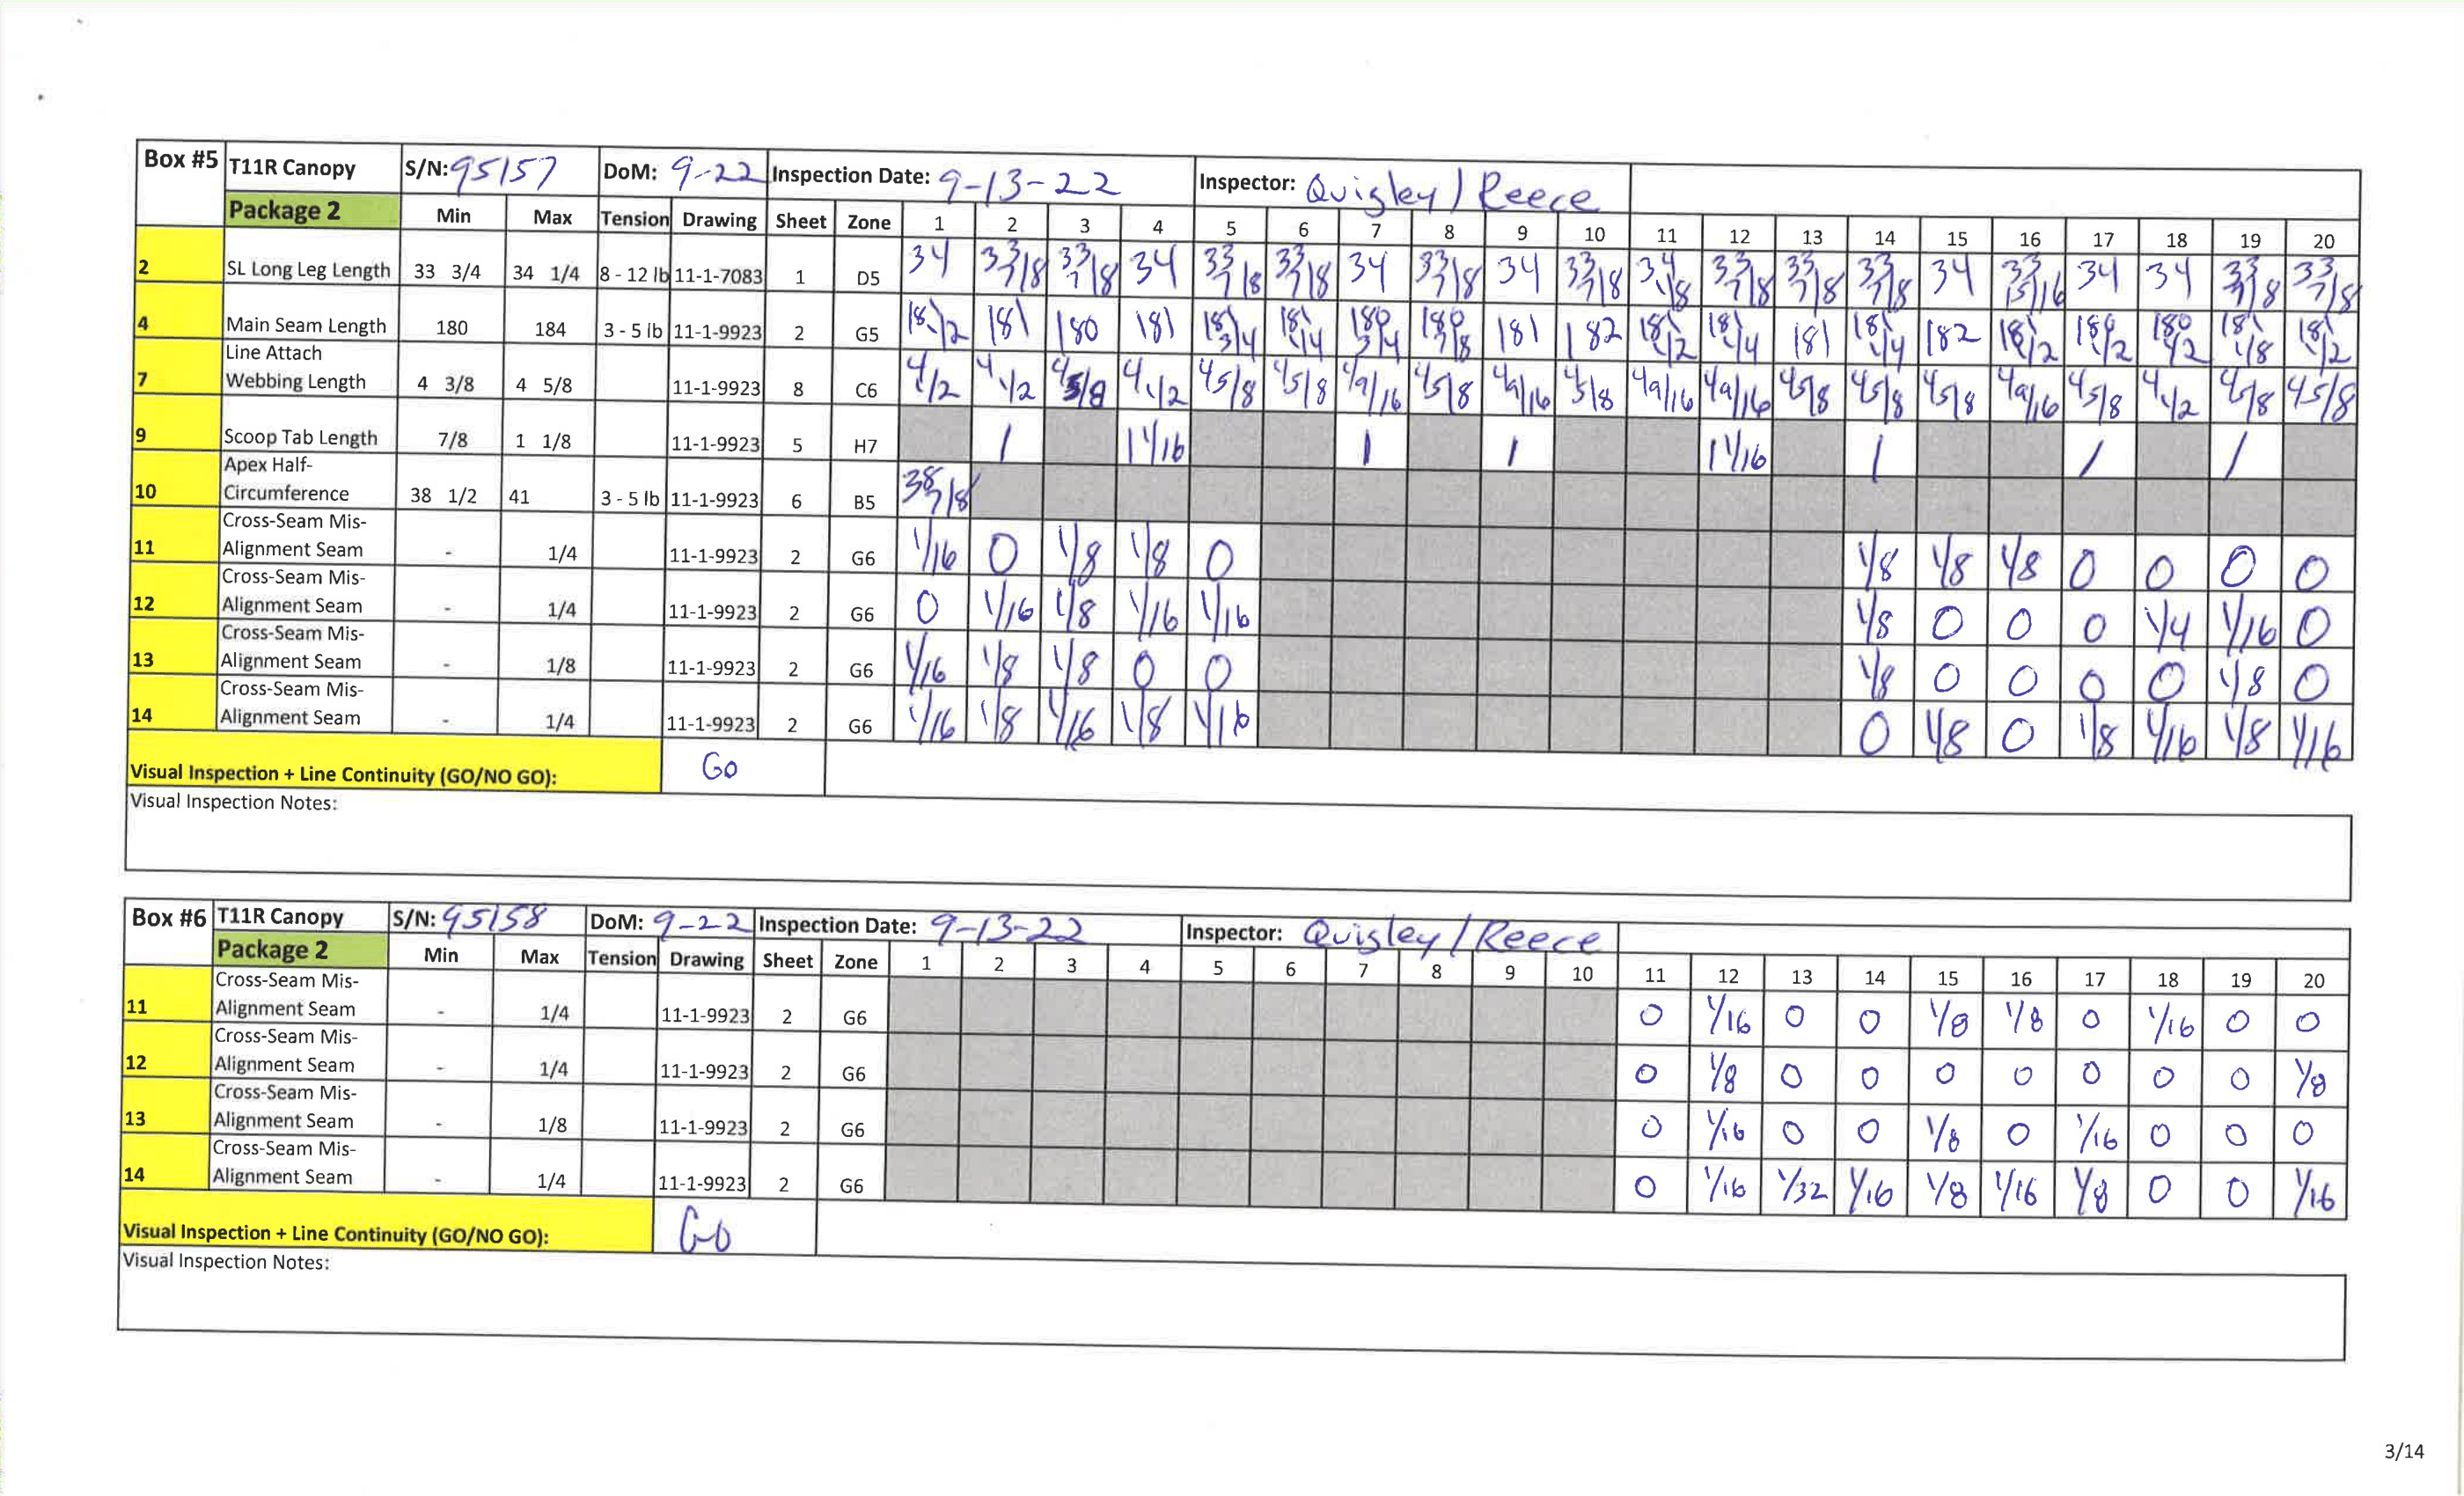 Box #5 T11R Canopy S/N: 95157 DoM: 9-22 Inspection Date: 9-13-22 Inspector: Quigley / Reece
Package 2 Min Max Tension Drawing Sheet Zone 1 2 3 4 5 6 7 8 9 10 11 12 13 14 15 16 17 18 19 20
2 SL Long Leg Length 33 3/4 34 1/4 8 - 12 lb 11-1-7083 1 D5 34 33 7/8 33 7/8 34 33 7/8 33 7/8 34 33 7/8 34 33 7/8 34 1/8 33 7/8 33 7/8 33 7/8 34 33 15/16 34 34 33 7/8 33 7/8
4 Main Seam Length 180 184 3 - 5 lb 11-1-9923 2 G5 181 1/2 181 180 181 181 3/4 181 1/4 180 3/4 180 7/8 181 182 181 1/2 181 1/4 181 181 1/4 182 181 1/2 180 1/2 180 1/2 181 1/8 181 1/2
Line Attach
7 Webbing Length 4 3/8 4 5/8 11-1-9923 8 C6 4 1/2 4 1/2 4 5/8 4 1/2 4 5/8 4 5/8 4 9/16 4 5/8 4 9/16 4 5/8 4 9/16 4 9/16 4 5/8 4 5/8 4 5/8 4 9/16 4 5/8 4 1/2 4 5/8 4 5/8
9 Scoop Tab Length 7/8 1 1/8 11-1-9923 5 H7 1 1 1/16 1 1 1 1/16 1 1 1
Apex Half-
10 Circumference 38 1/2 41 3 - 5 lb 11-1-9923 6 B5 38 7/8
Cross-Seam Mis-
11 Alignment Seam - 1/4 11-1-9923 2 G6 1/16 0 1/8 1/8 0 1/8 1/8 1/8 0 0 0 0
Cross-Seam Mis-
12 Alignment Seam - 1/4 11-1-9923 2 G6 0 1/16 1/8 1/16 1/16 1/8 0 0 0 1/4 1/16 0
Cross-Seam Mis-
13 Alignment Seam - 1/8 11-1-9923 2 G6 1/16 1/8 1/8 0 0 1/8 0 0 0 0 1/8 0
Cross-Seam Mis-
14 Alignment Seam - 1/4 11-1-9923 2 G6 1/16 1/8 1/16 1/8 1/16 0 1/8 0 1/8 1/16 1/8 1/16
Visual Inspection + Line Continuity (GO/NO GO): Go
Visual Inspection Notes:
Box #6 T11R Canopy S/N: 95158 DoM: 9-22 Inspection Date: 9-13-22 Inspector: Quigley / Reece
Package 2 Min Max Tension Drawing Sheet Zone 1 2 3 4 5 6 7 8 9 10 11 12 13 14 15 16 17 18 19 20
Cross-Seam Mis-
11 Alignment Seam - 1/4 11-1-9923 2 G6 0 1/16 0 0 1/8 1/8 0 1/16 0 0
Cross-Seam Mis-
12 Alignment Seam - 1/4 11-1-9923 2 G6 0 1/8 0 0 0 0 0 0 0 1/8
Cross-Seam Mis-
13 Alignment Seam - 1/8 11-1-9923 2 G6 0 1/16 0 0 1/8 0 1/16 0 0 0
Cross-Seam Mis-
14 Alignment Seam - 1/4 11-1-9923 2 G6 0 1/16 1/32 1/16 1/8 1/16 1/8 0 0 1/16
Visual Inspection + Line Continuity (GO/NO GO): GO
Visual Inspection Notes:
3/14